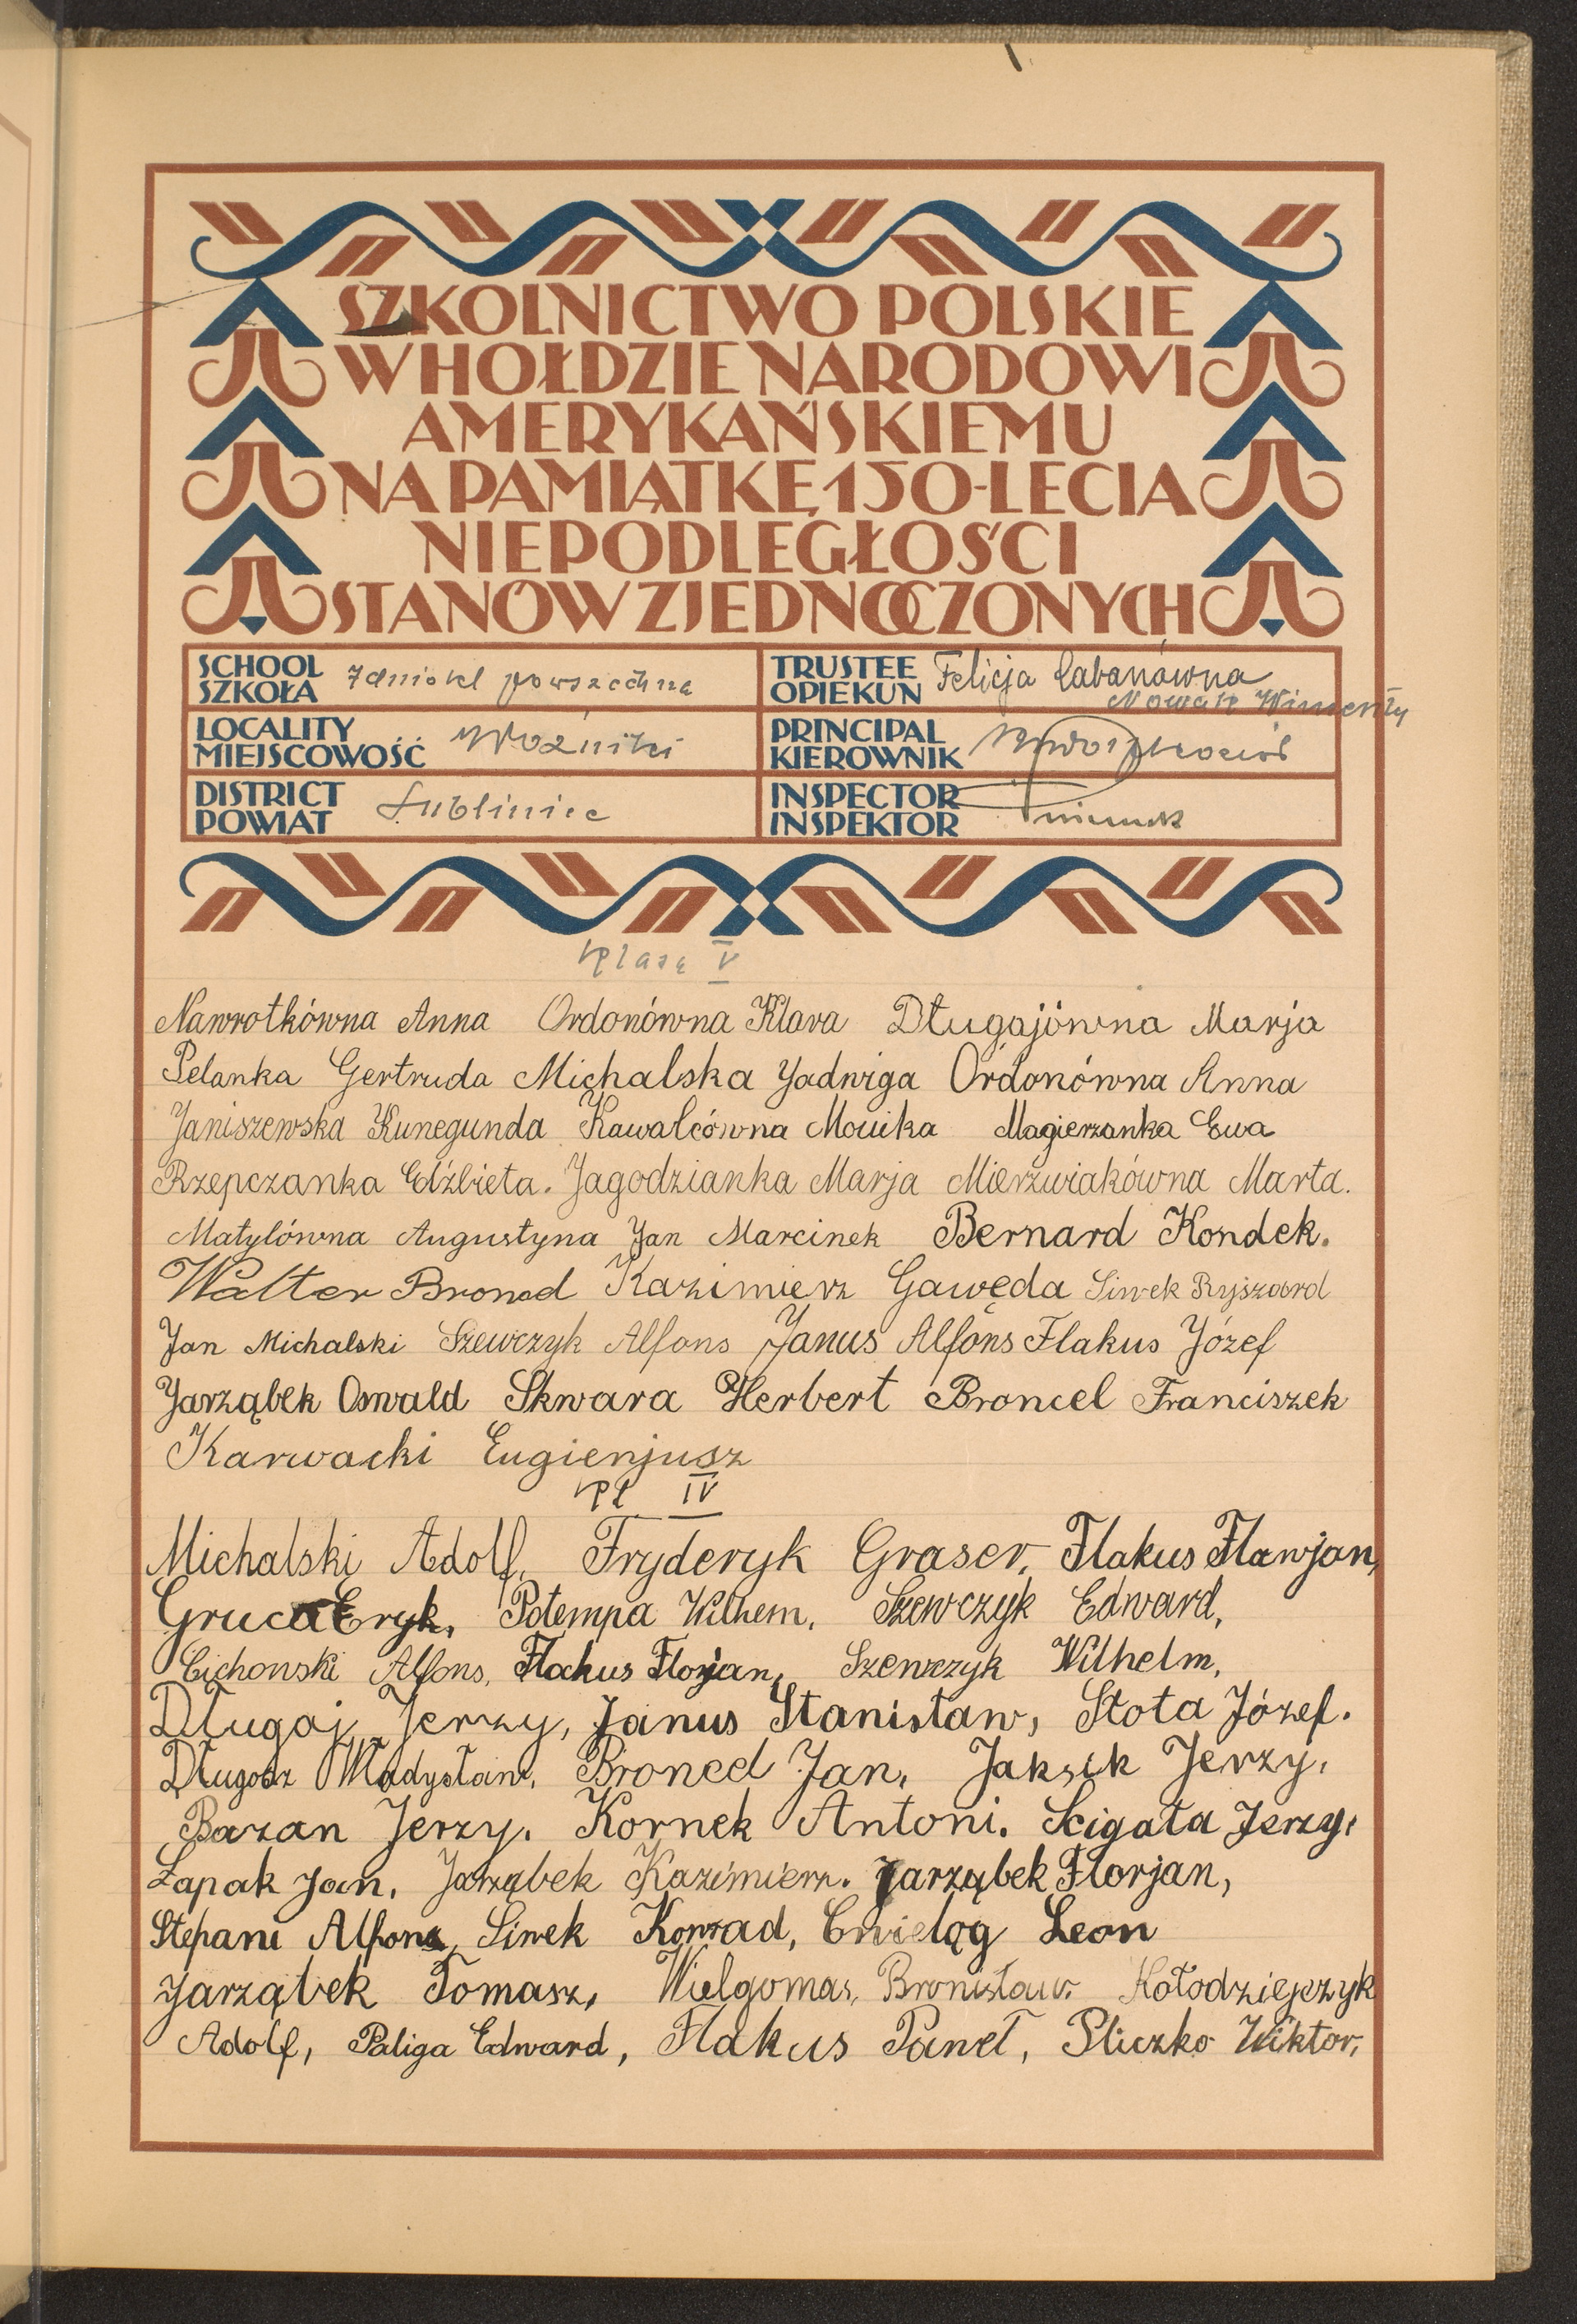 SZKOLNICTWO POLSKIE
W HOŁDZIE NARODOWI
AMERYKAŃSKIEMU
NA PAMIĄTKĘ 150-LECIA
NIEPODLEGŁOŚCI
STANÓW ZJEDNOCZONYCH
SCHOOL
SZKOŁA powszechna
TRUSTEE
OPIEKUN Felicja Labanówna
Nowak
LOCALITY
MIEJSCOWOŚĆ Woźniki
PRINCIPAL
KIEROWNIK
DISTRICT
POWIAT Lubliniec
INSPECTOR
INSPEKTOR
Klasa V
Nawrotkówna Anna Ordonówna Klara Długajówna Marja
Pelanka Gertruda Michalska Jadwiga Ordonówna Anna
Janiszewska Kunegunda Kawalcówna Monika Magierzanka Ewa
Rzepczanka Elżbieta. Jagodzianka Marja Mierzwiakówna Marta.
Matylówna Augustyna Jan Marcinek Bernard Kondek.
Walter Broncel Kazimierz Gawęda Siwek Ryjszard
Jan Michalski Szewczyk Alfons Janus Alfons Flakus Józef
Jarząbek Oswald Skwara Herbert Broncel Franciszek
Karwacki Eugienjusz
Kl IV
Michalski Adolf, Fryderyk Graser, Flakus Flawjan,
Gruca Eryk, Potempa Wilhem, Szewczyk Edward,
Cichowski Alfons, Flakus Florjan, Szewczyk Wilhelm,
Długaj Jerzy, Janus Stanisław, Słota Józef.
Długosz Władysław, Broncel Jan, Jaksik Jerzy,
Bazan Jerzy. Kornek Antoni. Ścigała Jerzy,
Łapak Jan, Jarząbek Kazimierz. Jarząbek Florjan,
Stepani Alfons, Siwek Konrad, Ćwieląg Leon
Jarząbek Tomasz, Wielgomas Bronisław. Kołodziejczyk
Adolf, Paliga Edward, Flakus Paweł, Śliczko Wiktor,